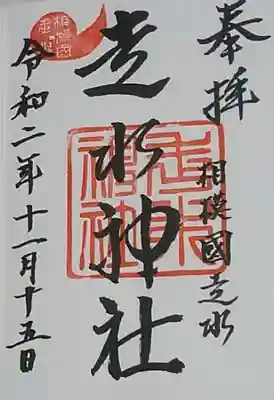 奉拝
相模國走水
走水神社
令和二年十一月十五日
相模國
走水
走水
神社